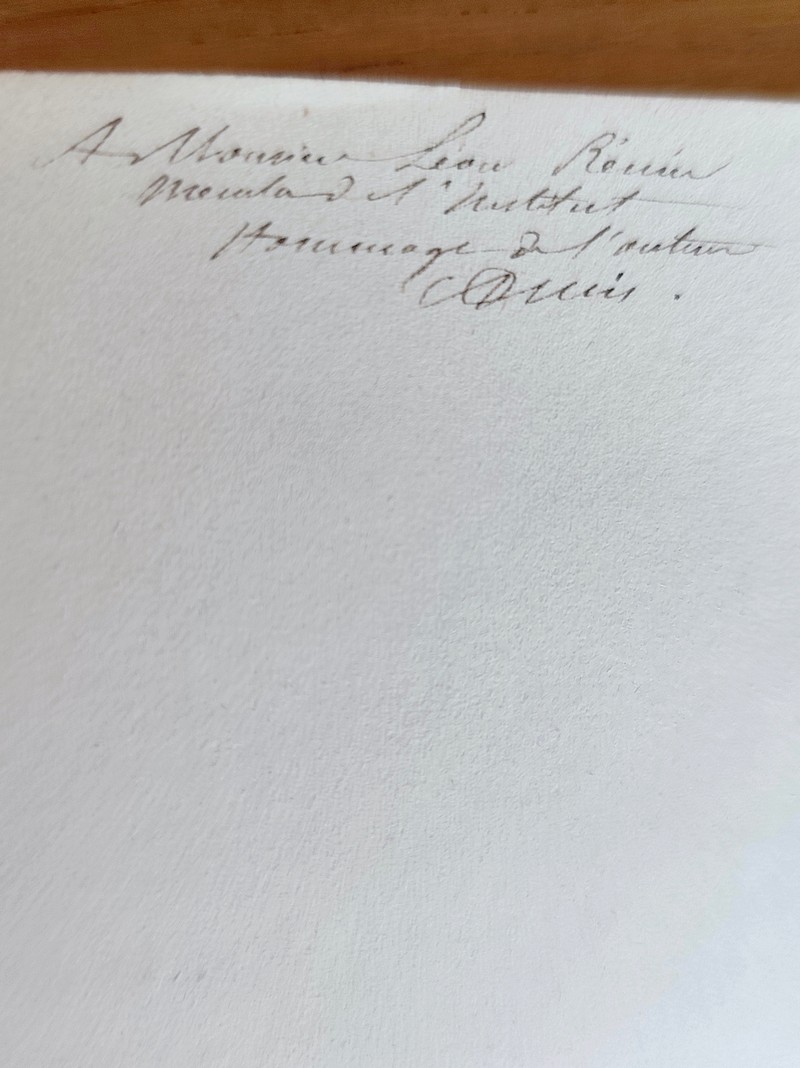 A Monsieur Léon Rénier
Membre de l'Institut
Hommage de l'auteur